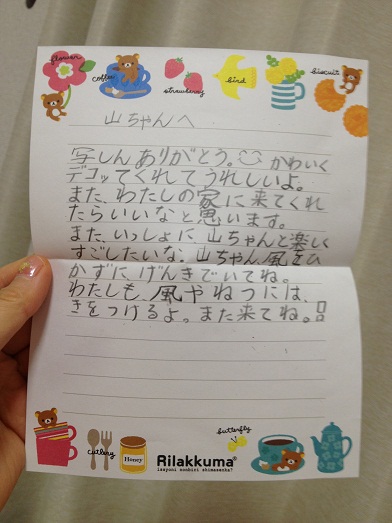 flower
coffee
strawberry
bird
biscuit
山ちゃんへ
写しんありがとう。かわいく
デコッてくれてうれしいよ。
また、わたしの家に来てくれ
たらいいなと思います。
また、いっしょに、山ちゃんと楽しく
すごしたいな。山ちゃん風をひ
かずにげんきでいてね。
わたしも、風やねつには、
きをつけるよ。また来てね。
cutlery
Honey
butterfly
Rilakkuma®
itsumo nonbiri shimasenka?